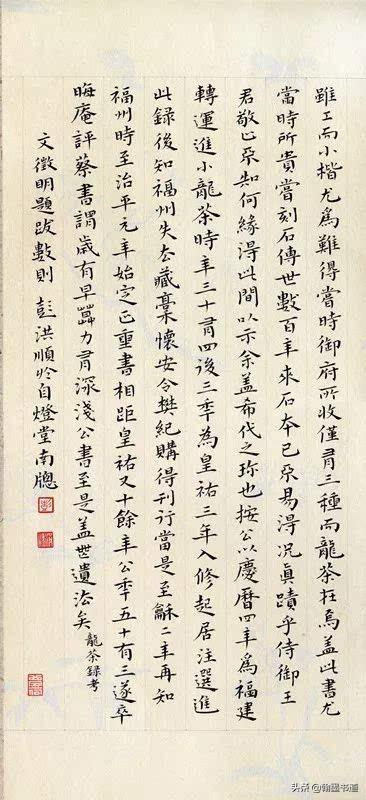 雖工而小楷尤為難得當時御府所收僅有三種而龍茶在焉盖此書尤
當時所貴嘗刻石傳世數百年來石本已不易得況真蹟乎侍御王
君敬止不知何緣得此間以示余盖希代之珎也按公以慶曆四年為福建
轉運進小龍茶時年三十有四後三年為皇祐三年入修起居注選進
此錄後知福州失去藏藁懷安令樊紀購得刊行當是至龢二年再知
福州時至治平元年始定正重書相距皇祐又十餘年公年五十有三遂卒
晦庵評蔡書謂歲有早力有深淺公書至是盖世遺法矣 龍茶錄考
文徵明題跋數則 彭洪順於自燈堂南牕
头条@翰墨书道